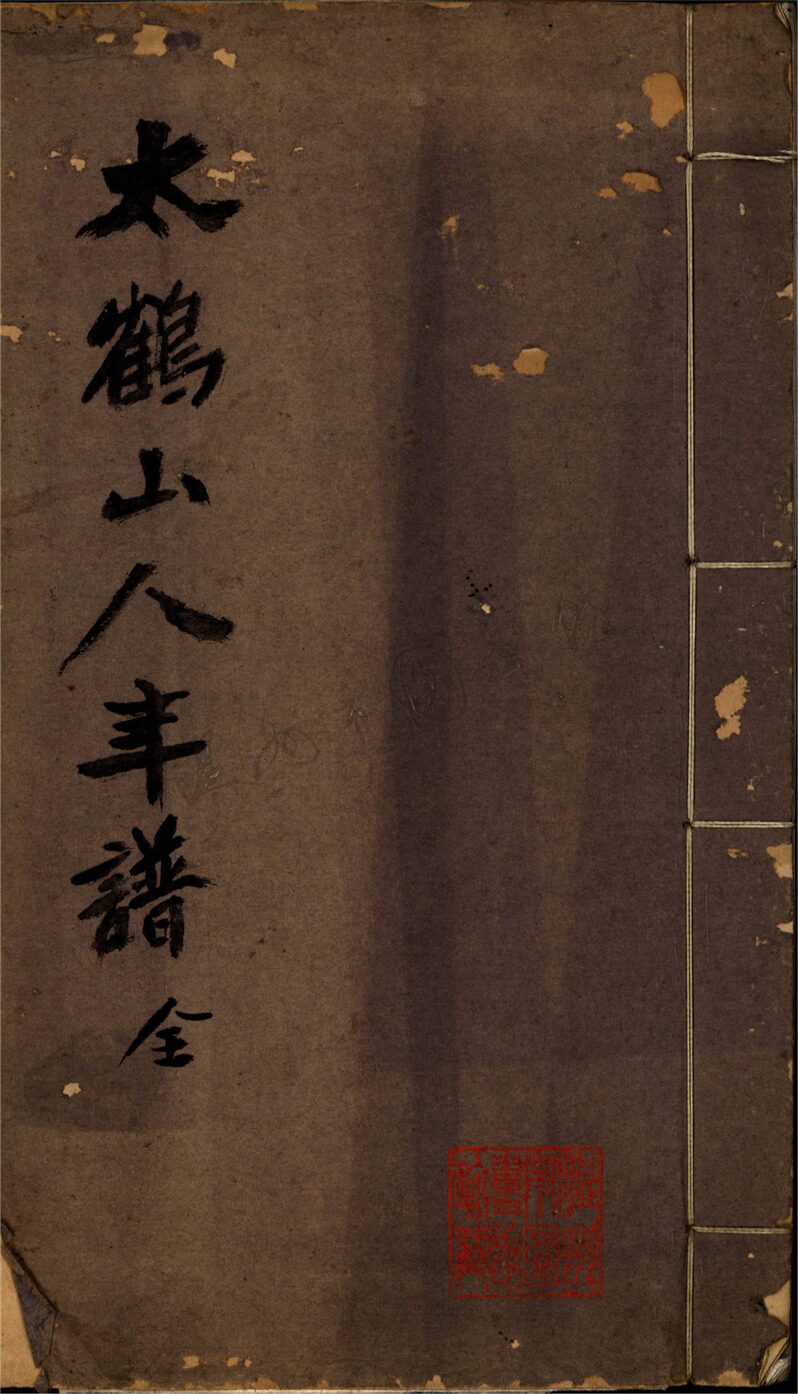 太鶴山人年譜 全